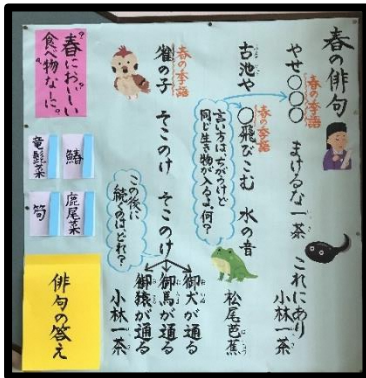 春の俳句
春の季語
やせ〇〇〇 まけるな一茶 これにあり
小林一茶
春の季語
古池や 〇飛びこむ 水の音
松尾芭蕉
言い方はちがうけど
同じ生き物が入るよ。何?
春の季語
雀の子 そこのけ そこのけ
御犬が通る
御馬が通る
御猿が通る
小林一茶
この後に
続くのはどれ?
春においしい
食べ物なーに。
鰆
竜髭菜
鹿尾菜
筍
俳句の答え